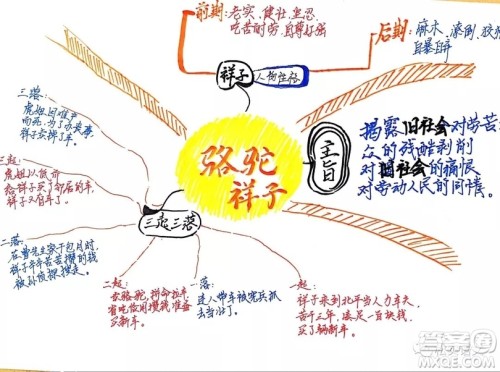 前期:老实、健壮、坚忍
吃苦耐劳、自尊好强
后期:麻木、潦倒、狡猾
自暴自弃
祥子
人物性格
骆驼
祥子
主旨
揭露旧社会对劳苦
众的残酷剥削
对旧社会的痛恨
对劳动人民的同情。
三起三落
三落:
虎妞因难产
而死,为了办丧事,
祥子卖掉了车。
三起:
虎妞以低价
给祥子买了邻居的车,
祥子又有车了。
二落:
在曹先生家干包月时,
祥子辛辛苦苦攒的钱
被孙侦探搜走。
二起:
卖骆驼,拼命拉车,
省吃俭用攒钱准备
买新车。
一落:
连人带车被宪兵抓
去当壮丁。
一起:
祥子来到北平当人力车夫,
苦干三年,凑足一百块钱,
买了辆新车。
答案圈
MXQE.COM